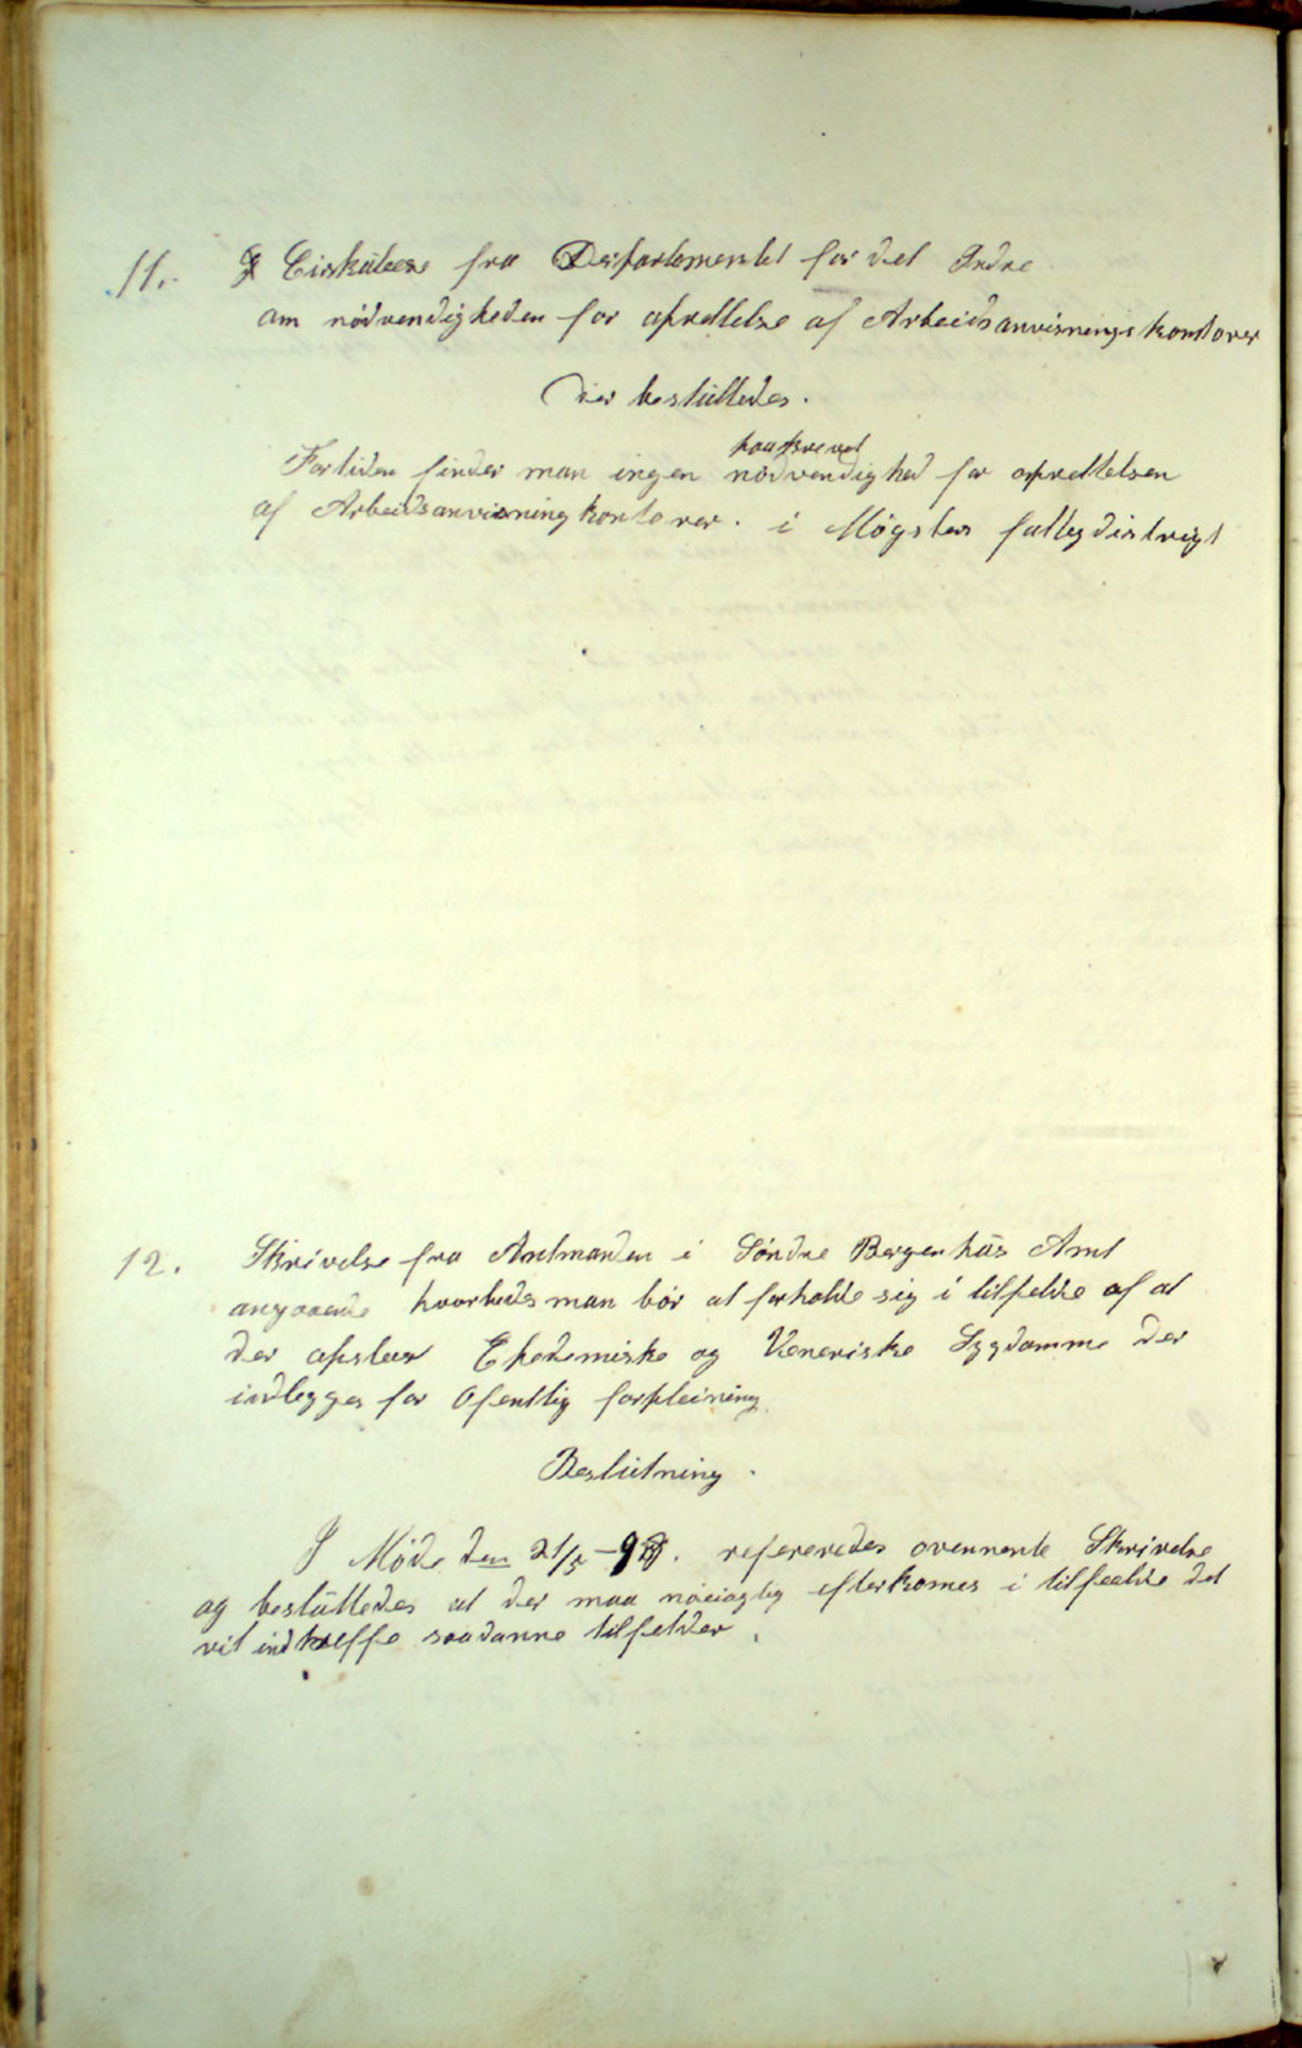 11. Cirkulere fra Departementet for det Indre
om nödvendigheden for oprettelse af Arbeidsanvisningskontorer
der beslüttedes.
paakrevet
Fortiden finder man ingen nödvendighed for oprettelsen
af Arbeidsanvisningkontorer. i Møgster fattigdistrigt
12. Skrivelse fra Amtmanden i Söndre Bergenhüs Amt
angaaende hvorledes man bör at forholde sig i tilfelde af at
der opstaar Epedemiske og Veneriske Sygdomme der
indlegges for Ofentlig forpleining
Beslütning.
I Möde den 21/5 – refereredes ovennente Skrivelse
og beslüttedes at der maa nöeiagtig efterkomes i tilfælde det
vil indtreffe saadanne tilfelder.